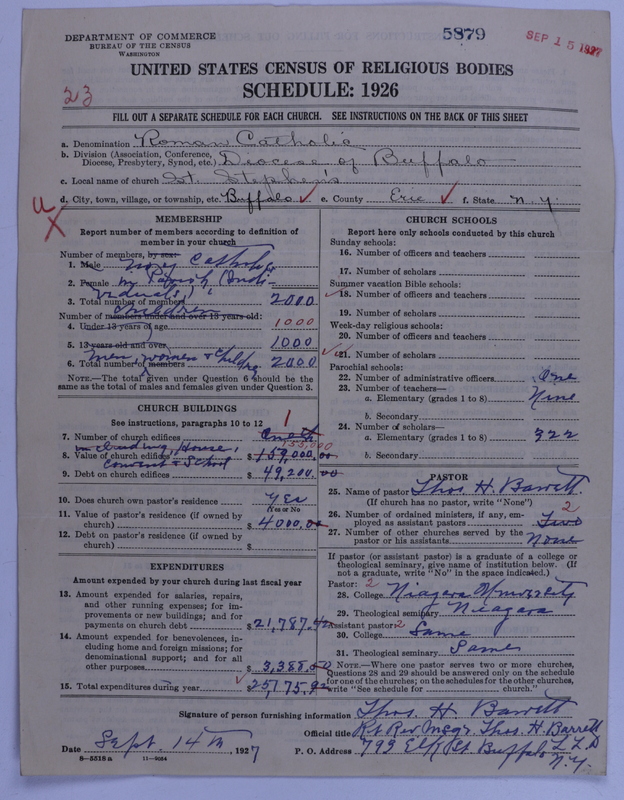 DEPARTMENT OF COMMERCE
BUREAU OF THE CENSUS
WASHINGTON
5879
SEP 15 1927
UNITED STATES CENSUS OF RELIGIOUS BODIES
SCHEDULE: 1926
23
FILL OUT A SEPARATE SCHEDULE FOR EACH CHURCH. SEE INSTRUCTIONS ON THE BACK OF THIS SHEET
a. Denomination Roman Catholic
b. Division (Association, Conference, Diocese, Presbytery, Synod, etc.) Diocese of Buffalo
c. Local name of church St. Stephen's
d. City, town, village, or township, etc. Buffalo e. County Erie f. State N.Y.
MEMBERSHIP
Report number of members according to definition of
member in your church
Number of members, by sex:
1. Male No. of Catholics
2. Female in Parish (Indi-
viduals)
3. Total number of members 2000
Number of members under and over 13 years old:
Children
4. Under 13 years of age 1000
5. 13 years old and over 1000
men, women & Children
6. Total number of members 2000
NOTE.—The total given under Question 6 should be the
same as the total of males and females given under Question 3.
CHURCH BUILDINGS
See instructions, paragraphs 10 to 12
1
7. Number of church edifices
including House,
155,000
8. Value of church edifices $159,000.00
Convent & School
9. Debt on church edifices $49,200.00
10. Does church own pastor's residence Yes
Yes or No
11. Value of pastor's residence (if owned by
church) $4000.00
12. Debt on pastor's residence (if owned by
church) $
EXPENDITURES
Amount expended by your church during last fiscal year
13. Amount expended for salaries, repairs,
and other running expenses; for im-
provements or new buildings; and for
payments on church debt $21,787.42
14. Amount expended for benevolences, in-
cluding home and foreign missions; for
denominational support; and for all
other purposes $3,388.50
15. Total expenditures during year $25,175.92
CHURCH SCHOOLS
Report here only schools conducted by this church
Sunday schools:
16. Number of officers and teachers
17. Number of scholars
Summer vacation Bible schools:
18. Number of officers and teachers
19. Number of scholars
Week-day religious schools:
20. Number of officers and teachers
21. Number of scholars
Parochial schools:
22. Number of administrative officers One
23. Number of teachers—
a. Elementary (grades 1 to 8) Nine
b. Secondary
24. Number of scholars—
a. Elementary (grades 1 to 8) 322
b. Secondary
PASTOR
25. Name of pastor Thos. H. Barrett
(If church has no pastor, write "None")
26. Number of ordained ministers, if any, em-
ployed as assistant pastors Two 2
27. Number of other churches served by the
pastor or his assistants None
If pastor (or assistant pastor) is a graduate of a college or
theological seminary, give name of institution below. (If
not a graduate, write "No" in the space indicated.)
Pastor: 2
28. College Niagara University
29. Theological seminary Niagara
Assistant pastor: 2
30. College Same
31. Theological seminary Same
NOTE.—Where one pastor serves two or more churches,
Questions 28 and 29 should be answered only on the schedule
for one of the churches; on the schedules for the other churches,
write "See schedule for church."
Signature of person furnishing information Thos. H. Barrett
Official title Rt Rev Msgr Thos. H. Barrett LLD
Date Sept. 14th, 1927
P. O. Address 793 Elk St Buffalo N.Y.
8—5518a 11—9034